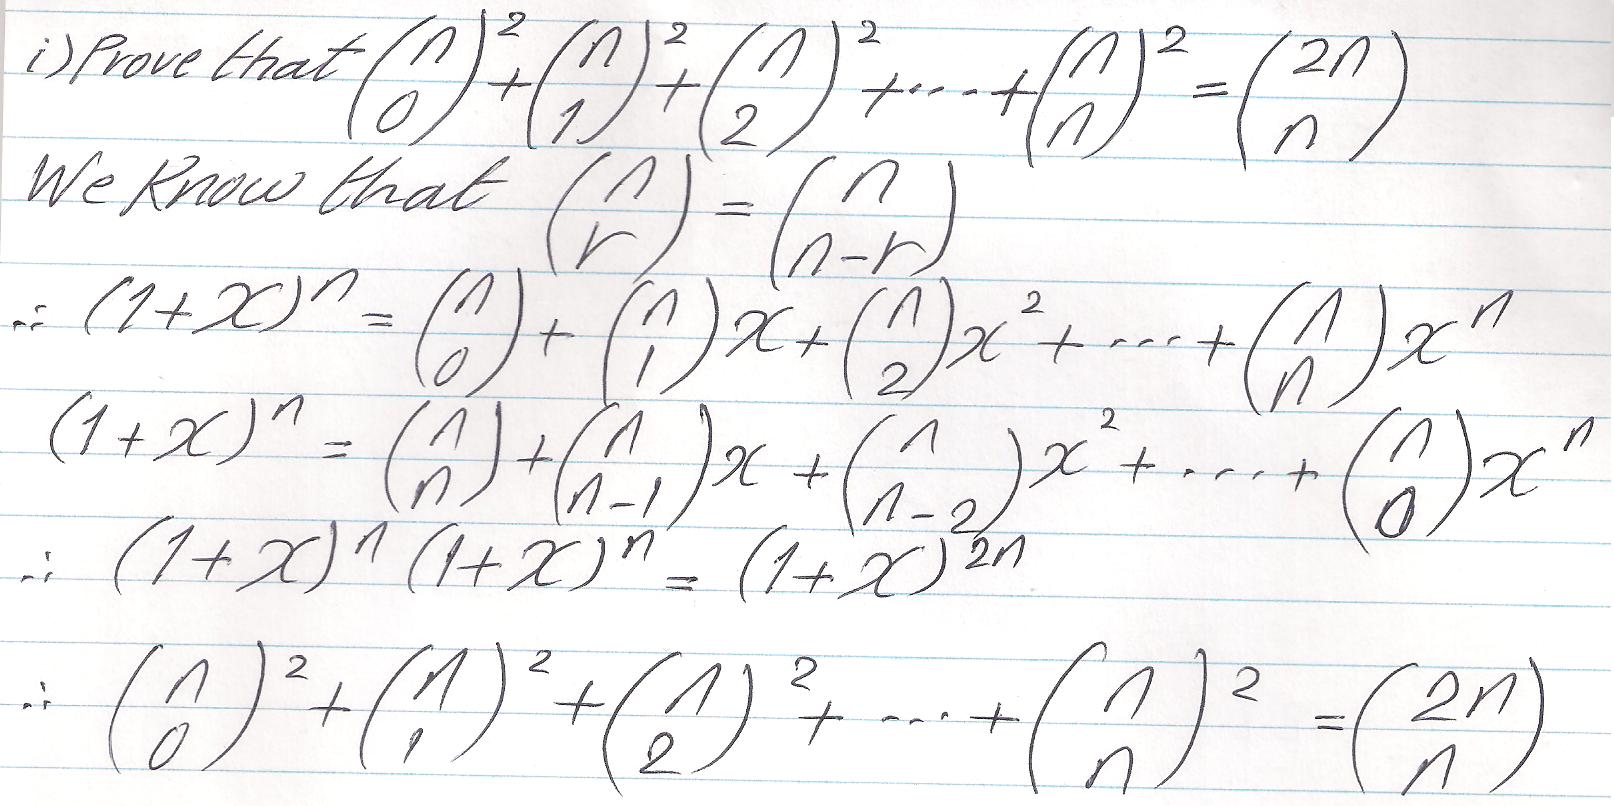 i) Prove that (n 0)² + (n 1)² + (n 2)² + ... + (n n)² = (2n n)
We know that (n r) = (n n-r)
∴ (1+x)ⁿ = (n 0) + (n 1)x + (n 2)x² + ... + (n n)xⁿ
(1+x)ⁿ = (n n) + (n n-1)x + (n n-2)x² + ... + (n 0)xⁿ
∴ (1+x)ⁿ (1+x)ⁿ = (1+x)²ⁿ
∴ (n 0)² + (n 1)² + (n 2)² + ... + (n n)² = (2n n)